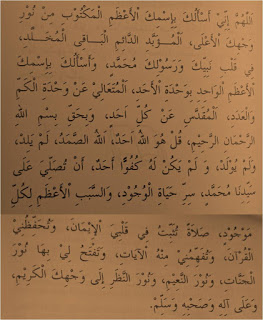 اَللّٰهُمَّ إِنِّي أَسْأَلُكَ بِاِسْمِكَ الْأَعْظَمِ الْمَكْتُوْبِ مِنْ نُوْرِ
وَجْهِكَ الْأَعْلَى، الْمُؤَبَّدِ الدَّائِمِ الْبَاقِى الْمُخَلَّدِ،
فِي قَلْبِ نَبِيِّكَ وَرَسُوْلِكَ مُحَمَّدٍ، وَأَسْأَلُكَ بِاِسْمِكَ
الْأَعْظَمِ الْوَاحِدِ بِوَحْدَةِ الْأَحَدِ، الْمُتَعَالِيْ عَنْ وَحْدَةِ الْكَمِّ
وَالْعَدَدِ، الْمُقَدَّسِ عَنْ كُلِّ اَحَدٍ، وَبِحَقِّ بِسْمِ اللهِ
الرَّحْمٰنِ الرَّحِيْمِ، قُلْ هُوَ اللهُ اَحَدٌ؛ اَللهُ الصَّمَدُ، لَمْ يَلِدْ،
وَلَمْ يُوْلَدْ، وَ لَمْ يَكُنْ لَهُ كُفُوًا أَحَدٌ، أَنْ تُصَلِّيَ عَلَى
سَيِّدِنَا مُحَمَّدٍ، سِرِّ حَيَاةِ الْوُجُوْدِ، وَالسَّبَبِ الْأَعْظَمِ لِكُلِّ
مَوْجُوْدٍ، صَلَاةً تُثَبِّتُ فِي قَلْبِيَ الْإِيْمَانَ، وَتُحَفِّظُنِي
الْقُرْآنَ، وَتُفَهِّمُنِي مِنْهُ الْآيَاتِ، وَتَفْتَحُ لِي بِهَا نُوْرَ
الْجَنَّاتِ، وَنُوْرَ النَّعِيْمِ، وَنُوْرَ النَّظَرِ إِلَى وَجْهِكَ الْكَرِيْمِ،
وَعَلَى آلِهِ وَصَحْبِهِ وَسَلِّمْ.